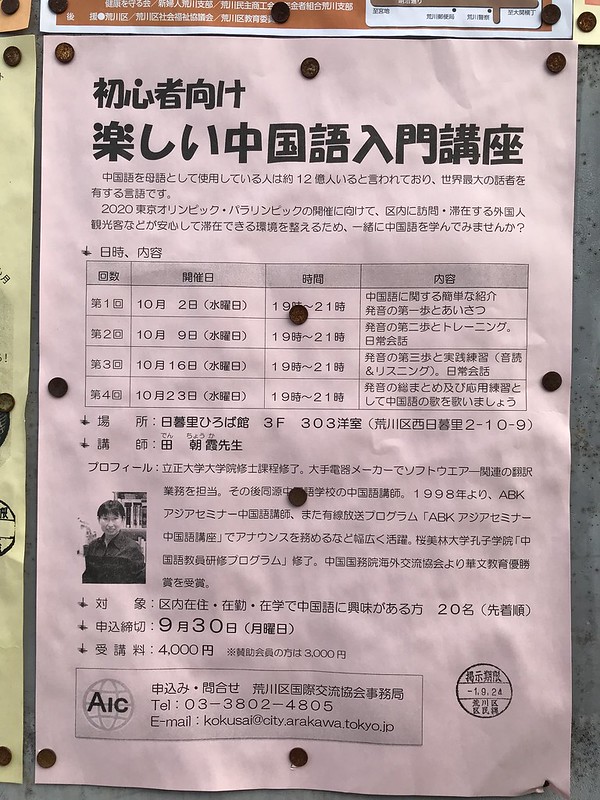 健康を守る会／新婦人荒川支部／荒川民主商工会
会者組合荒川支部
後 援●荒川区／荒川区社会福祉協議会／荒川区教育委
至宮地
荒川郵便局
荒川警察
至大関横丁
初心者向け
楽しい中国語入門講座
中国語を母語として使用している人は約12億人いると言われており、世界最大の話者を
有する言語です。
2020東京オリンピック・パラリンピックの開催に向けて、区内に訪問・滞在する外国人
観光客などが安心して滞在できる環境を整えるため、一緒に中国語を学んでみませんか？
日時、内容
回数 開催日 時間 内容
第1回 10月 2日（水曜日） 19時～21時 中国語に関する簡単な紹介
発音の第一歩とあいさつ
第2回 10月 9日（水曜日） 19時～21時 発音の第二歩とトレーニング。
日常会話
第3回 10月16日（水曜日） 19時～21時 発音の第三歩と実践練習（音読
＆リスニング）。日常会話
第4回 10月23日（水曜日） 19時～21時 発音の総まとめ及び応用練習と
して中国語の歌を歌いましょう
場 所：日暮里ひろば館 3F 303洋室（荒川区西日暮里2-10-9）
でん ちょうか
講 師：田 朝霞先生
プロフィール：立正大学大学院修士課程修了。大手電器メーカーでソフトウエアー関連の翻訳
業務を担当。その後同源中国語学校の中国語講師。1998年より、ABK
アジアセミナー中国語講師、また有線放送プログラム「ABKアジアセミナー
中国語講座」でアナウンスを務めるなど幅広く活躍。桜美林大学孔子学院「中
国語教員研修プログラム」修了。中国国務院海外交流協会より華文教育優勝
賞を受賞。
対 象：区内在住・在勤・在学で中国語に興味がある方 20名（先着順）
申込締切：9月30日（月曜日）
受講料：4,000円 ※賛助会員の方は3,000円
AIC
申込み・問合せ 荒川区国際交流協会事務局
Tel：03-3802-4805
E-mail：kokusai@city.arakawa.tokyo.jp
掲示期限
-1.9.24
荒川区